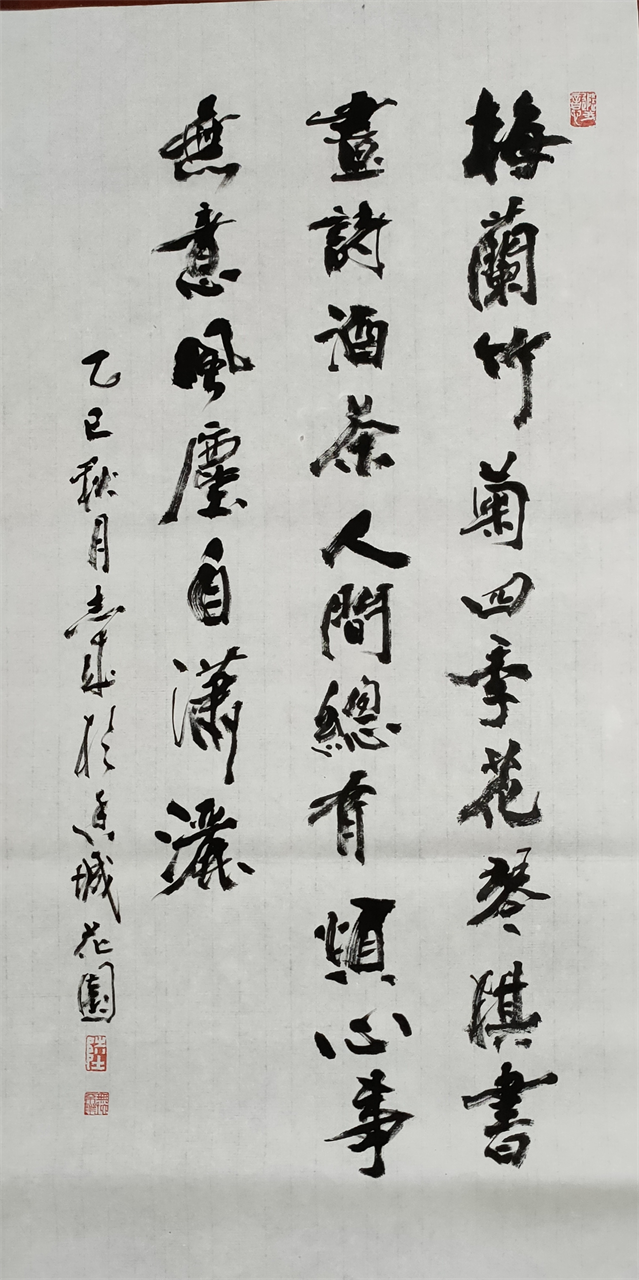 梅蘭竹菊四季花琴棋書
畫詩酒茶人間總有煩心事
無意風塵自瀟灑
乙巳秋月志成於香城花園